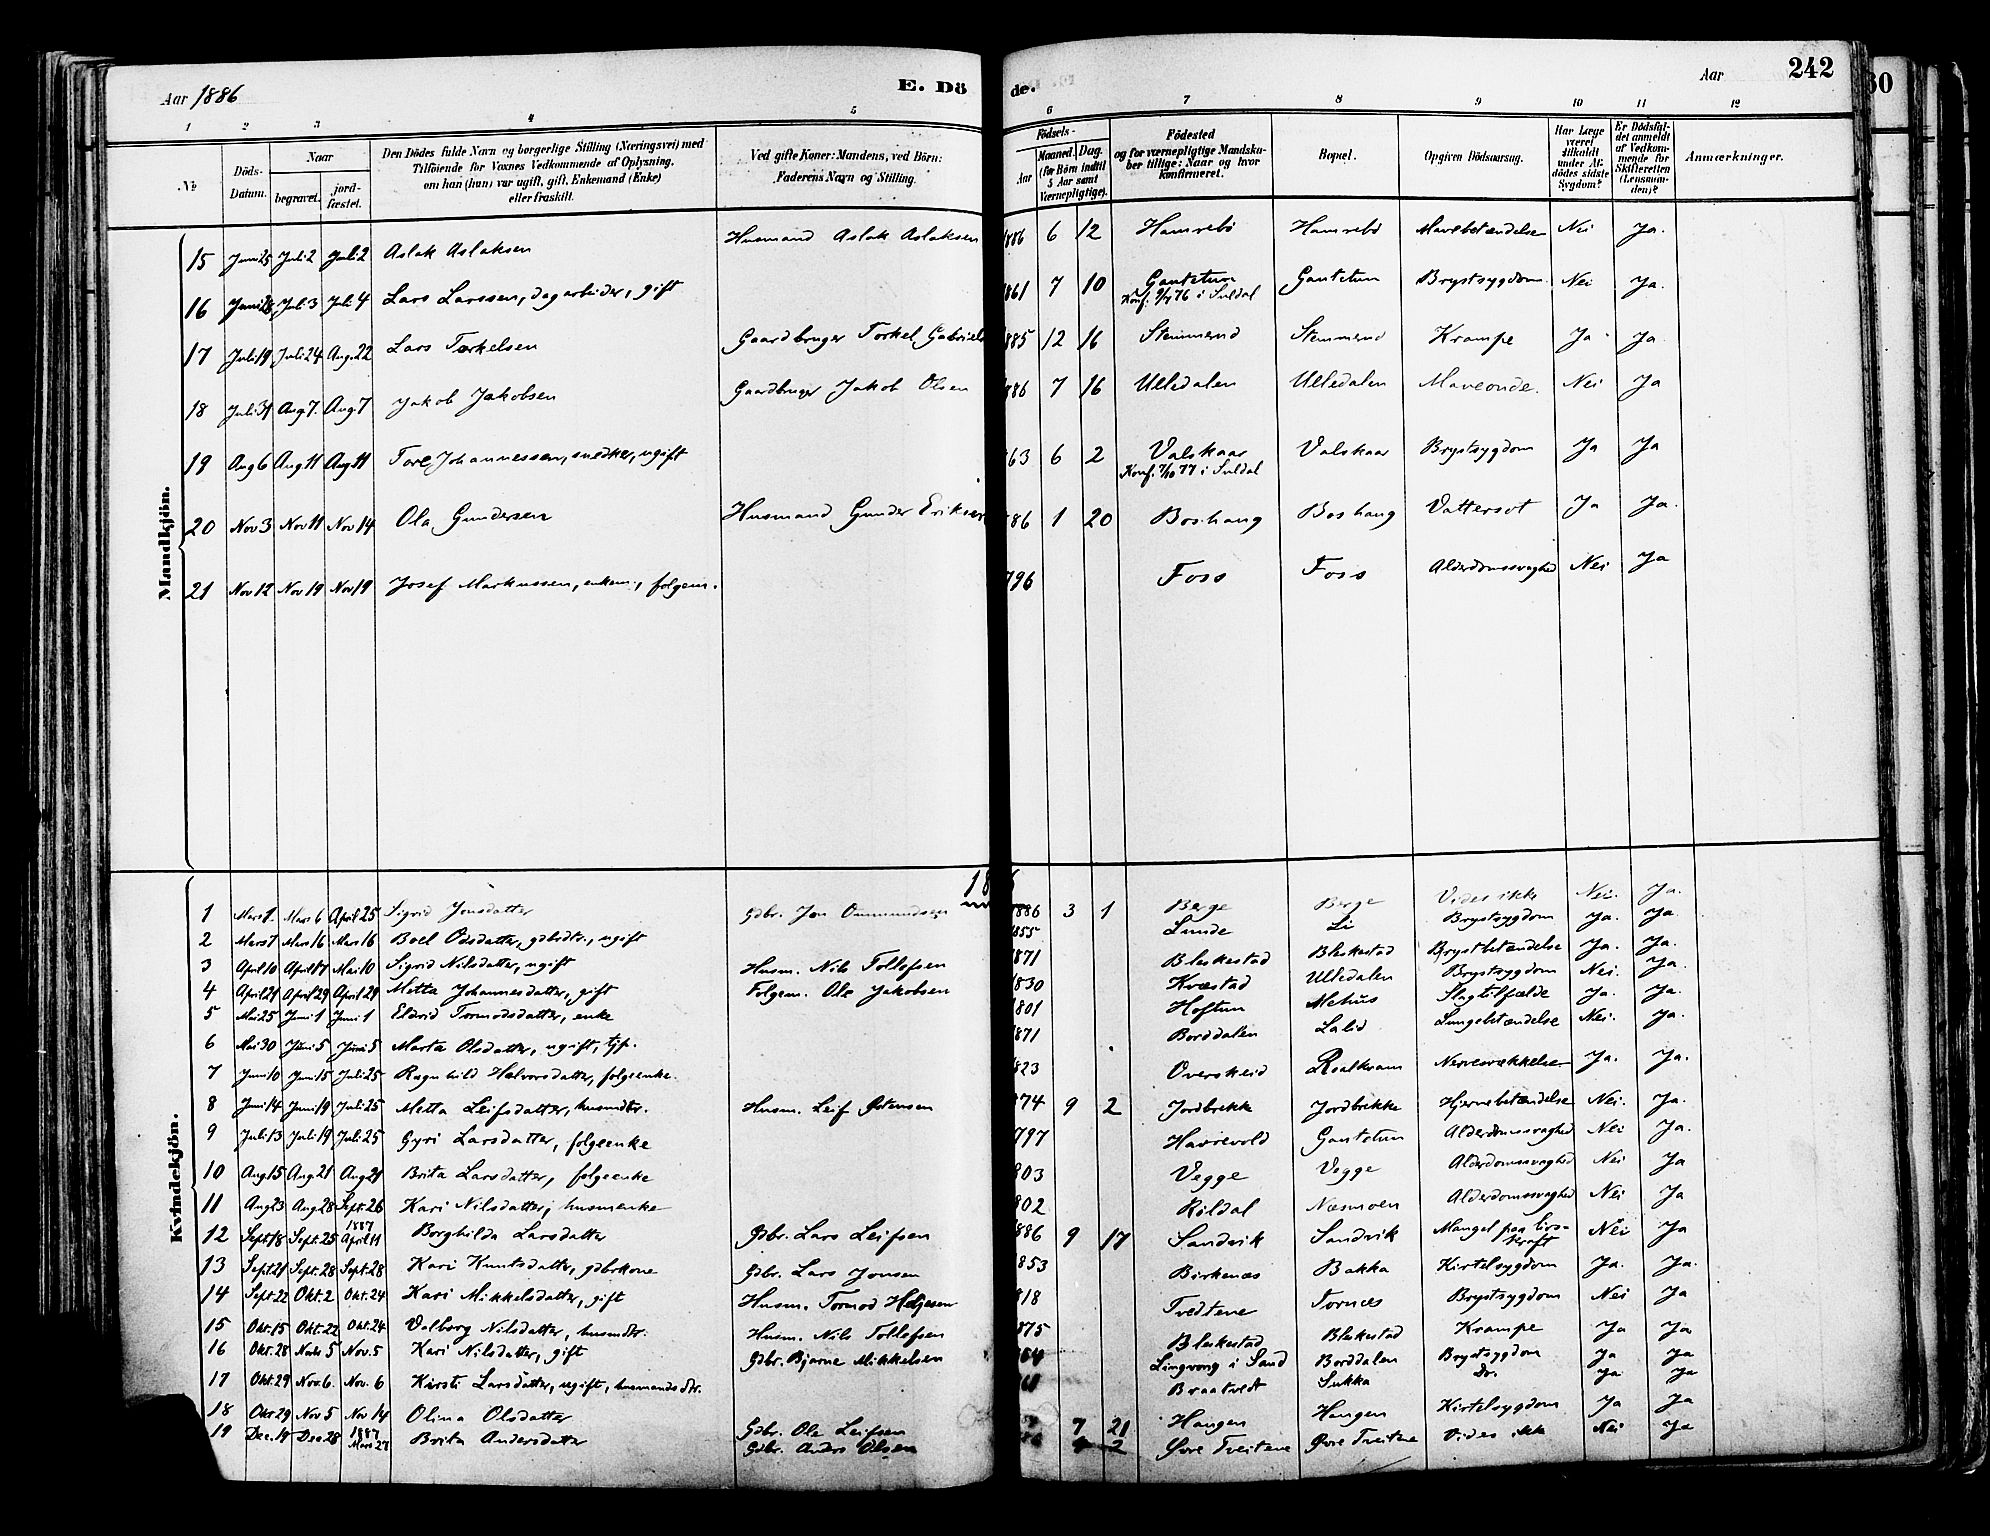 Aar 1886
E. Dö
de.
Aar
242
1 2 3 4 5 6 7 8 9 10 11 12
No
Döds-Datum.
Naar
begravet.
jord-fæstet.
Den Dödes fulde Navn og borgerlige Stilling (Næringsvei) med
Tilföiende for Voxnes Vedkommende af Oplysning,
om han (hun) var ugift, gift, Enkemand (Enke)
eller fraskilt.
Ved gifte Koner: Mandens, ved Börn:
Faderens Navn og Stilling.
Födsels-
Aar
Maaned. Dag.
(for Börn indtil
5 Aar samt
Værnepligtige).
Födested
og for værnepligtige Mandska-
ber tillige: Naar og hvor
konfirmeret.
Bopæl.
Opgiven Dödsaarsag.
Har Læge
været
tilkaldt
under Af-
dödes sidste
Sygdom?
Er Dödsfal-
det anmeldt
af Vedkom-
mende for
Skifteretten
(Lensman-
den)?
Anmærkninger.
Mandkjön.
15 Juni 25 Juli 2 Juli 2 Aslak Aslaksen Husmand Aslak Aslaksen 1886 6 12 Hamrebö Hamrebö Mavebetændelse Nei Ja.
16 Juni 28 Juli 3 Juli 4 Lars Larssen, dagarbeider, gift 861 7 10 Gautetun Gautetun Brystsygdom Nei Ja.
Konf. 9/4 76 i Suldal
17 Juli 19 Juli 24 Aug. 22 Lars Torkelsen Gaardbruger Torkel Gabriels 885 12 16 Stemmend Stemmend Krampe Ja Ja
18 Juli 31 Aug 7. Aug 7 Jakob Jakobsen Gaardbruger Jakob Olsen 886 7 16 Ulledalen Ulledalen Maveonde. Nei Ja
19 Aug 6 Aug 11 Aug 11 Tore Johannessen, snedker, ugift 63 6 2 Valskaar Valskaar Brystsygdom Ja Ja
Konf. 7/10 77 i Suldal
20 Nov 3 Nov 11 Nov 14 Ola Gundersen Husmand Gunder Eriksen 86 1 20 Boshaug Boshaug Vattersot Ja Ja.
21 Nov 12 Nov 19 Nov 19 Josef Markussen, enkem., folgem. 796 Foss Foss Alderdomssvaghed Nei Ja
Kvindekjön.
1 Mars 1. Mars 6 April 25 Sigrid Jonsdatter Gdbr. Jon Ommundsen 1886 3 1 Berge Berge Vides ikke Nei. Ja.
2 Mars 7 Mars 16 Mars 16 Boel Odsdatter, gdbrdtr., ugift 1855 Lunde Li Brystsygdom Ja. Ja.
3 April 10 April 17 Mai 10 Sigrid Nilsdatter, ugift Husm. Nils Tollofsen 1871 Bleskestad Bleskestad Brystbetændelse Ja. Ja.
4 April 21 April 29 April 29 Metta Johannesdatter, gift Folgem. Ole Jakobsen 1830 Kvæstad Ulledalen Brystsygdom Nei. Ja.
5 Mai 25 Juni 1 Juni 1 Eldrid Tormodsdatter, enke 1801 Hoftun Mehus Slagtilfælde Ja. Ja.
6 Mai 30 Juni 5 Juni 5 Marta Olsdatter, ugift, tjp. 871 Borddalen Lalid Lungebetændelse Nei. Ja.
7 Juni 10 Juni 15 Juli 25 Ragnhild Halvorsdatter, folgeenke. 823 Overskeid Roalkvam Nervesvækkelse Ja. Ja.
8 Juni 14 Juni 19 Juli 25 Metta Leifsdatter, husmdtr. Husm. Leif Östensen 874 9 2 Jordbrekke Jordbrekke Hjernebetændelse Nei. Ja.
9 Juli 13 Juli 19 Juli 25 Gyri Larsdatter, folgeenke 797 Havrevold Gautetun Alderdomssvaghed Nei Ja.
10 Aug 15 Aug 21 Aug 21 Brita Larsdatter, folgeenke 803 Vegge Vegge Alderdomssvaghed Nei Ja
11 Aug 23 Aug 28 Sept. 26 Kari Nilsdatter, husmenke 802 Röldal Næsmoen Alderdomssvaghed Nei Ja
12 Sept. 18 Sept. 25 1887 April 11 Borghilda Larsdatter Gdbr. Lars Leifsen 886 9 17 Sandvik Sandvik Mangel paa livs-kraft Nei Ja
13 Sept 21 Sept. 28 Sept. 28 Kari Knutsdatter, gdbrkone Gdbr. Lars Jonsen 1853 Birkenæs Bakka Kirtelsygdom Ja. Ja.
14 Sept. 22 Okt. 2 Okt. 24 Kari Mikkelsdatter, gift Husm. Tormod Helgesen 818 Tveitene Tornes Brystsygdom Nei Ja
15 Okt. 15 Okt. 22 Okt. 24 Valborg Nilsdatter, husmdtr. Husm. Nils Tollofsen 875 Bleskestad Bleskestad Krampe Ja Ja
16 Okt. 28 Nov. 5 Nov. 5 Kari Nilsdatter, gift Gdbr. Bjarne Mikkelsen 64 Lingvang i Sand Borddalen Brystsygdom Ja Ja
17 Okt. 29 Nov. 6. Nov. 6 Kirsti Larsdatter, ugift, husmandsdtr. Braatveit Sukka Do. Ja Ja
18 Okt 29 Nov 5 Nov 14 Olina Olsdatter Gdbr. Ole Leifsen 7 21 Haugen Haugen Kirtelsygdom Ja Ja
19 Dec. 19 Dec 28 1887 Mars 27 Brita Andersdatter Gdbr. Anders Olsen 2 Övre Tveitene Övre Tveitene Vides ikk Nei Ja